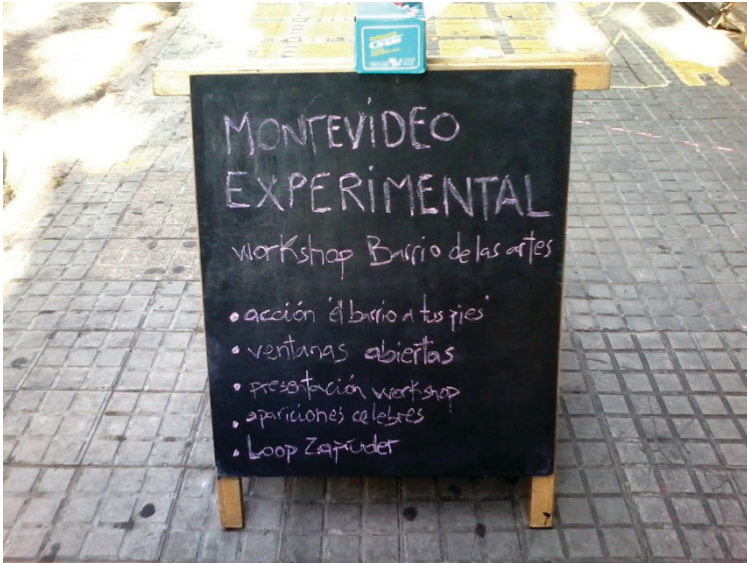 MONTEVIDEO
EXPERIMENTAL
workshop Barrio de las artes
• acción 'el barrio a tus pies'
• ventanas abiertas
• presentación workshop
• apariciones celebres
• Loop Zapruder